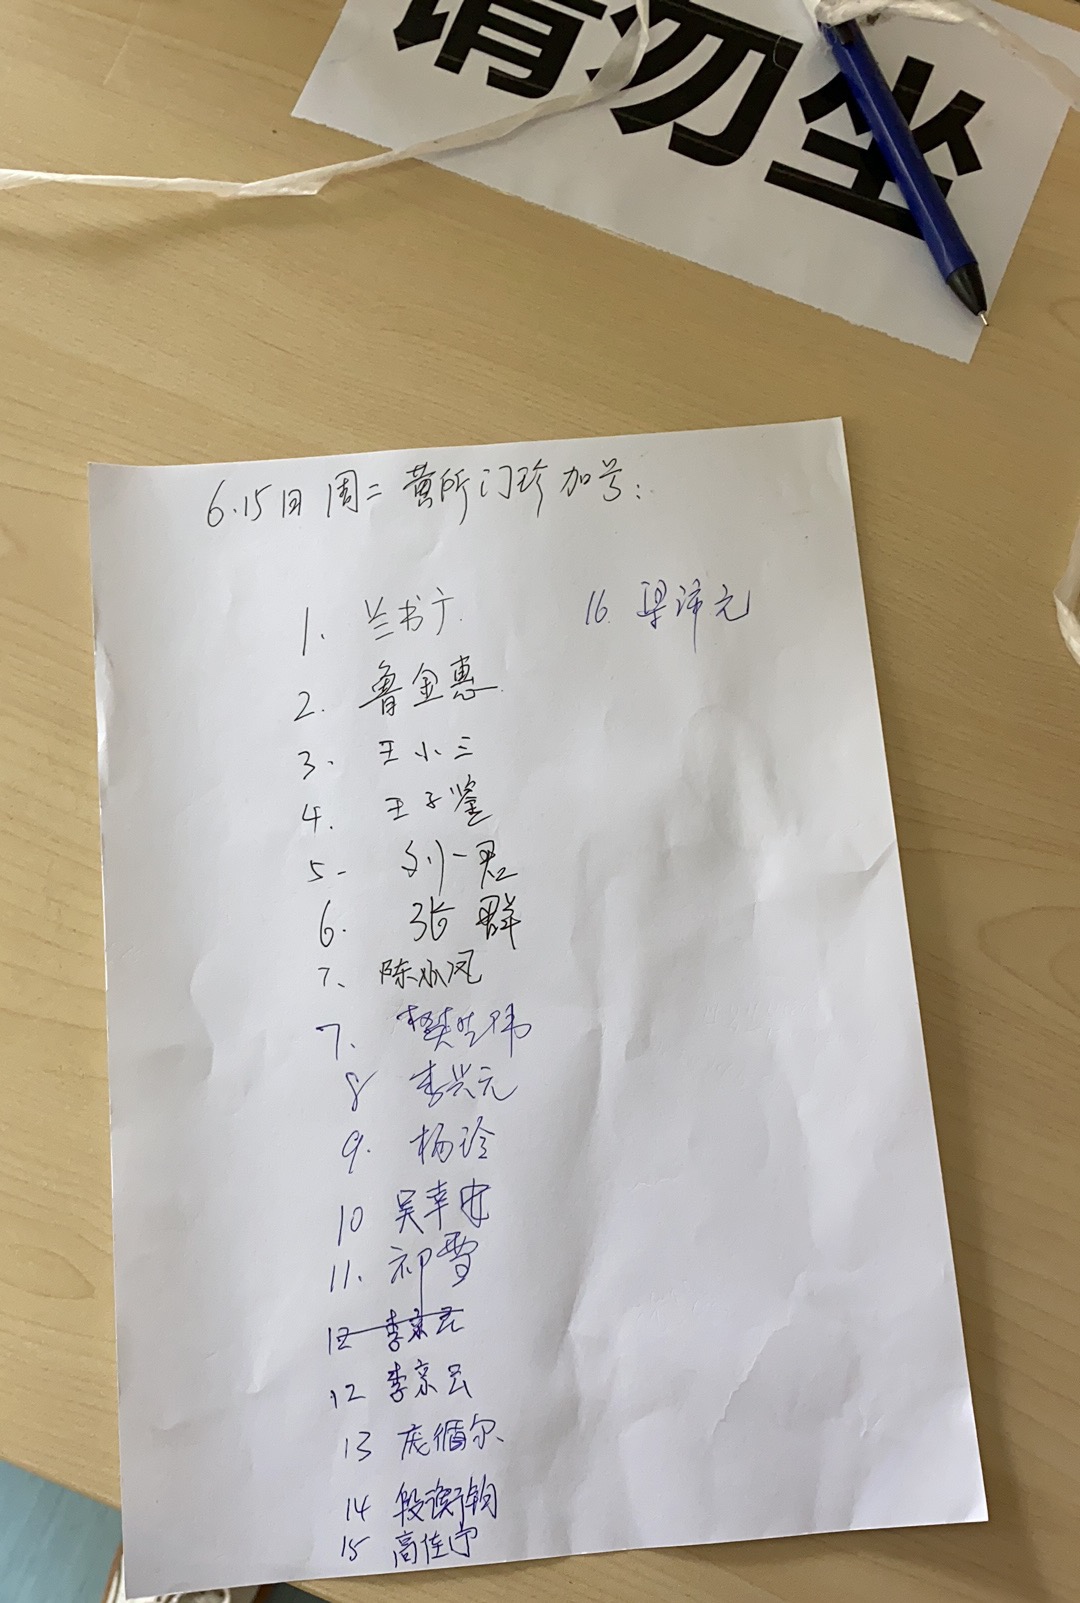 请勿坐
6.15日 周二 黄所门诊加号:
1. 兰书广
2. 鲁金惠
3. 王小三
4. 王子鉴
5- 刘一君
6. 张群
7、陈水凤
7. 樊生伟
8 李兴元
9. 杨玲
10 吴幸
11. 祁雪
12 李京云
12 李京云
13 庞循尔
14 段衡钧
15 高佳宁
16. 梁沛元